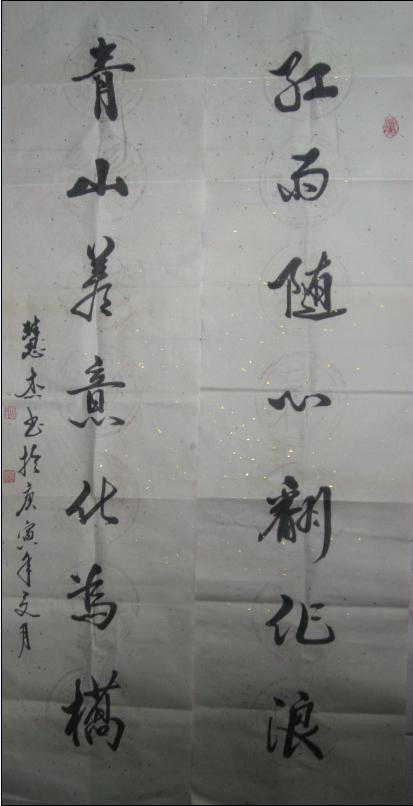 红雨随心翻作浪
青山着意化为橋
慧杰书於庚寅年文月